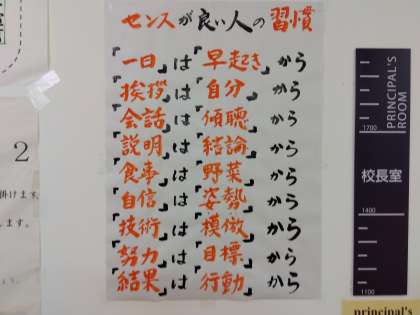 センスが良い人の習慣
『一日』は『早起き』から
『挨拶』は『自分』から
『会話』は『傾聴』から
『説明』は『結論』から
『食事』は『野菜』から
『自信』は『姿勢』から
『技術』は『模倣』から
『努力』は『目標』から
『結果』は『行動』から
2
掛けます
します。
PRINCIPAL'S
ROOM
1700
校長室
1400
1100
principal's